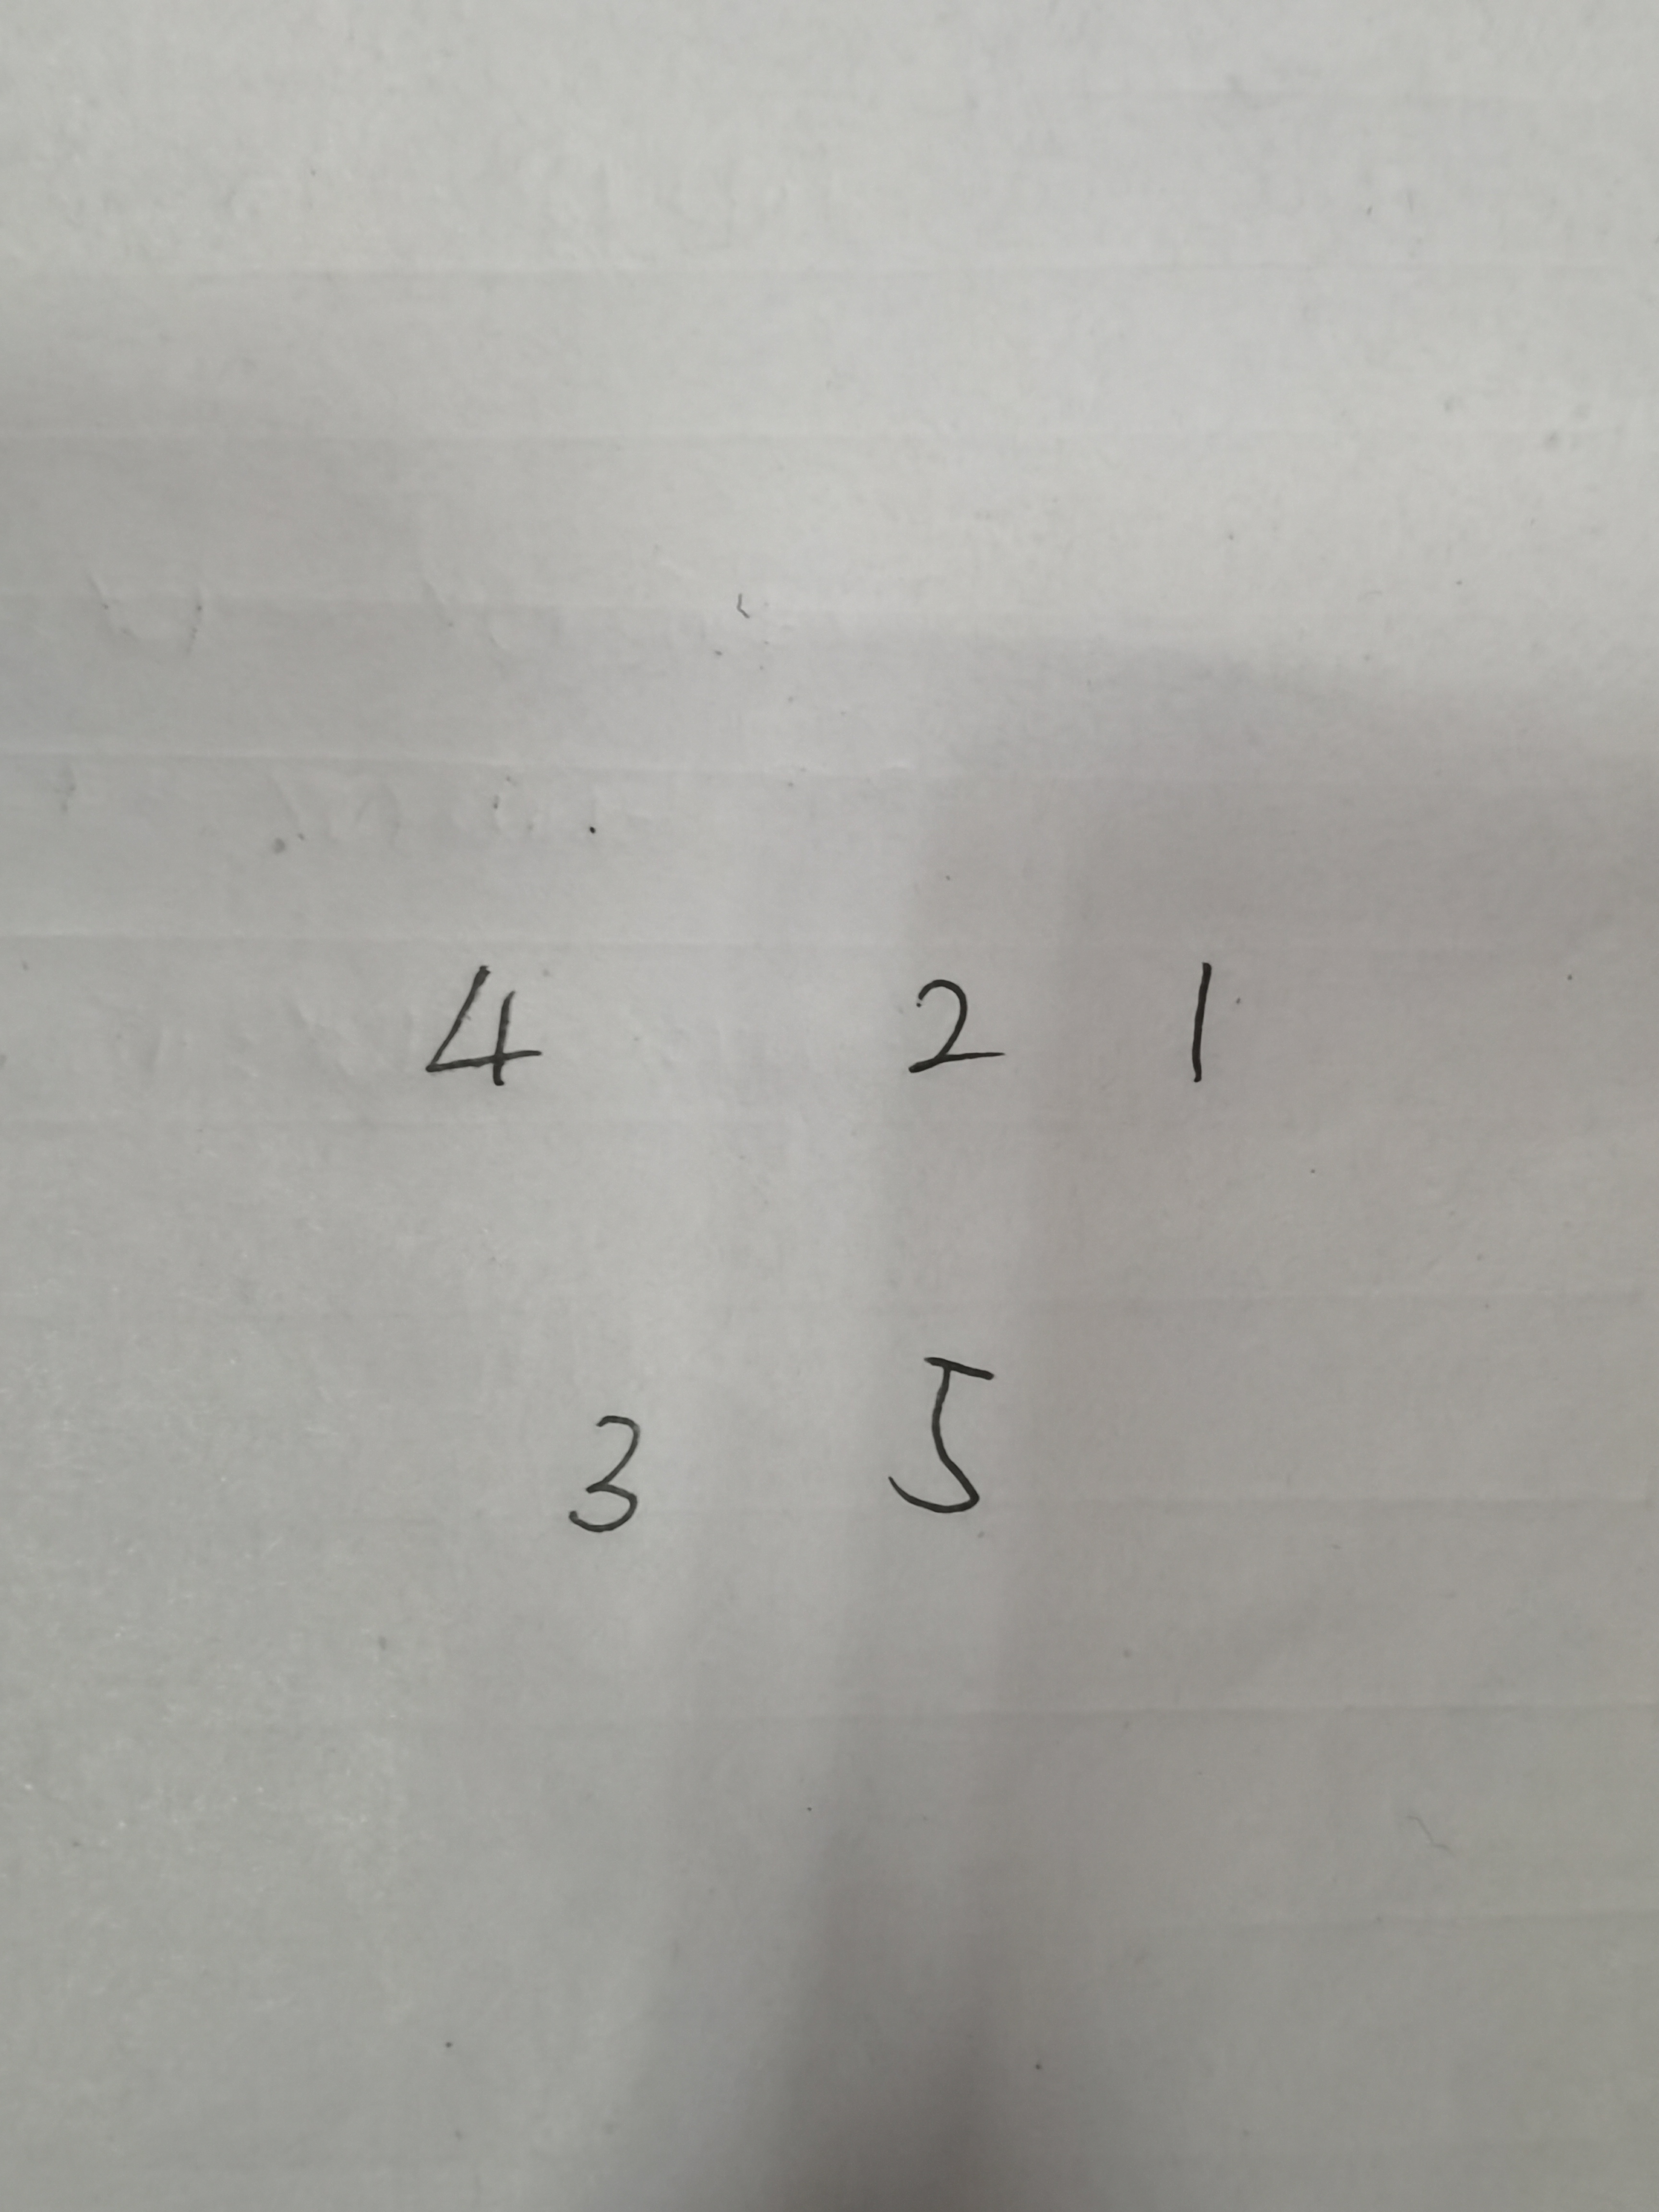 4 2 1
3 5